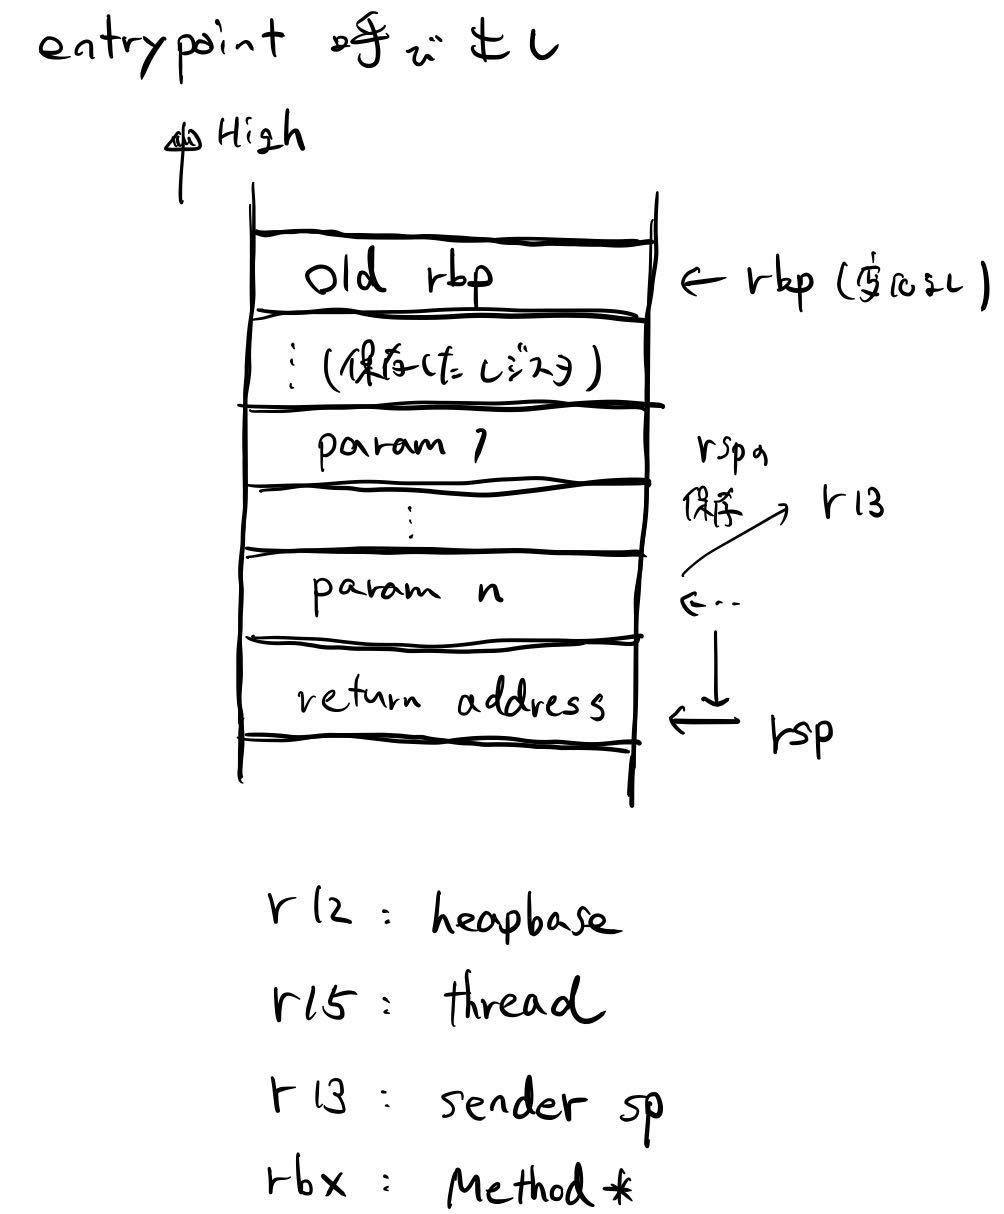 entrypoint 呼び出し
High
old rbp
← rbp (変化なし)
⋮ (保存したレジスタ)
param 1
rspを
保存
r13
⋮
param n
←...
return address
← rsp
r12 : heapbase
r15 : thread
r13 : sender sp
rbx : Method*